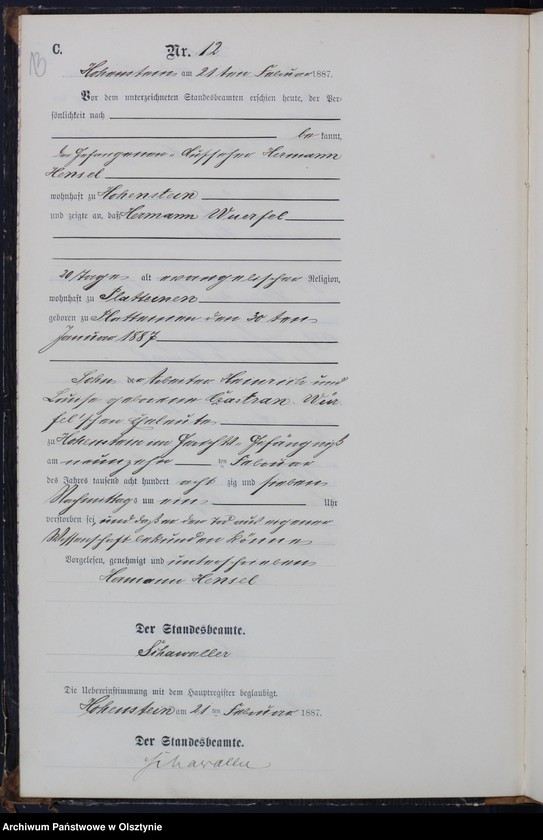 C. Nr. 12
Hohenstein am 21ten Februar 1887.
Vor dem unterzeichneten Standesbeamten erschien heute, der Per-
sönlichkeit nach
be kannt,
der Gefangenen-Aufseher Hermann
Hensel
wohnhaft zu Hohenstein
und zeigte an, daß Hermann Wuerfel
20 Tage alt evangelischer Religion,
wohnhaft zu Platteinen
geboren zu Platteinen den 30ten
Januar 1887
Sohn der Arbeiter Heinrich und
Louise geborene Wür
fel'schen Eheleute
zu Hohenstein im Gerichts-Gefängniß
am neunzehn ten Februar
des Jahres tausend acht hundert acht zig und sieben
Nachmittags um ein Uhr
verstorben sei und daß er den Tod aus eigener
Wissenschaft bekunden könne
Vorgelesen, genehmigt und unterschrieben
Hermann Hensel
Der Standesbeamte.
Schawaller
Die Uebereinstimmung mit dem Hauptregister beglaubigt.
Hohenstein am 21 ten Februar 1887.
Der Standesbeamte.
Schawaller
Archiwum Państwowe w Olsztynie